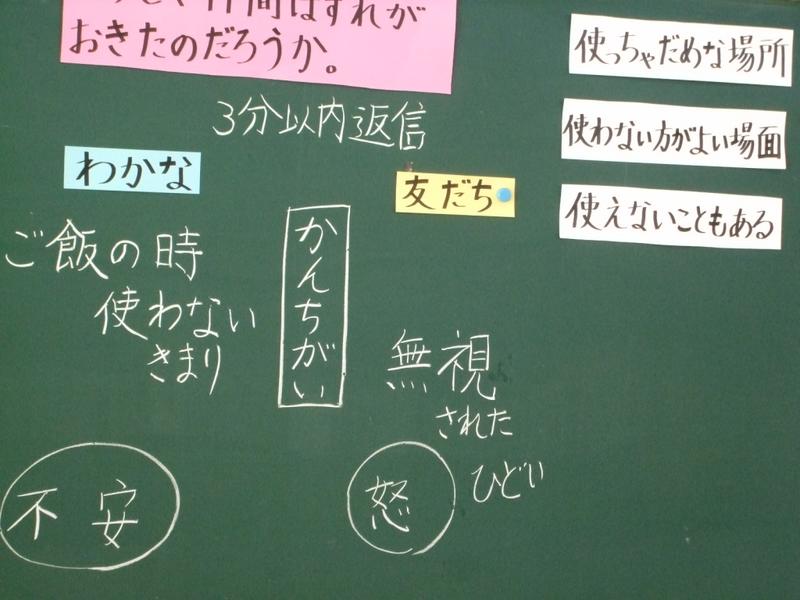 仲間はずれが
おきたのだろうか。
3分以内返信
わかな
友だち
ご飯の時
使わない
きまり
かんちがい
無視
された
ひどい
不安
怒
使っちゃだめな場所
使わない方がよい場面
使えないこともある